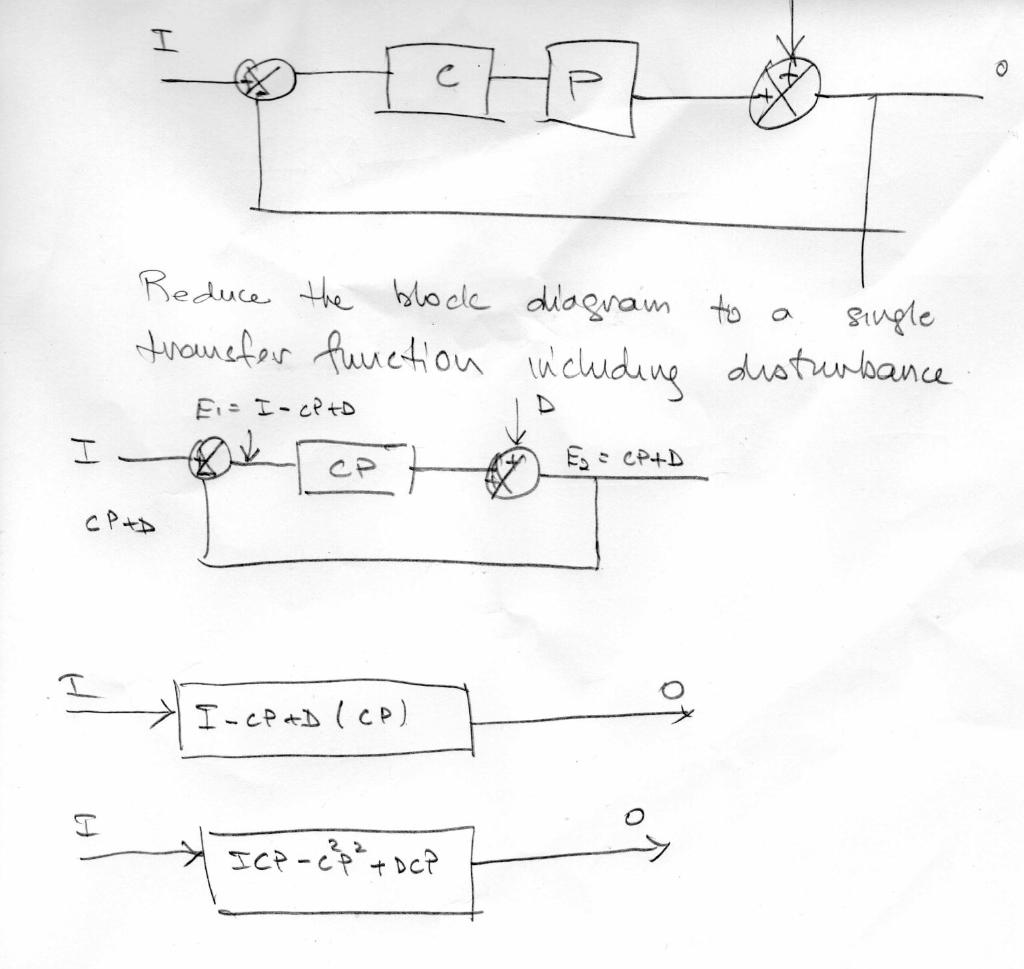 I
C
P
O
+
-
+
+
Reduce the block diagram to a single
transfer function including disturbance
E₁ = I - CP+D
D
I
+
-
CP
+
+
E₂ = CP+D
CP+D
I
O
I - CP+D (CP)
I
O
ICP - C²P² + DCP